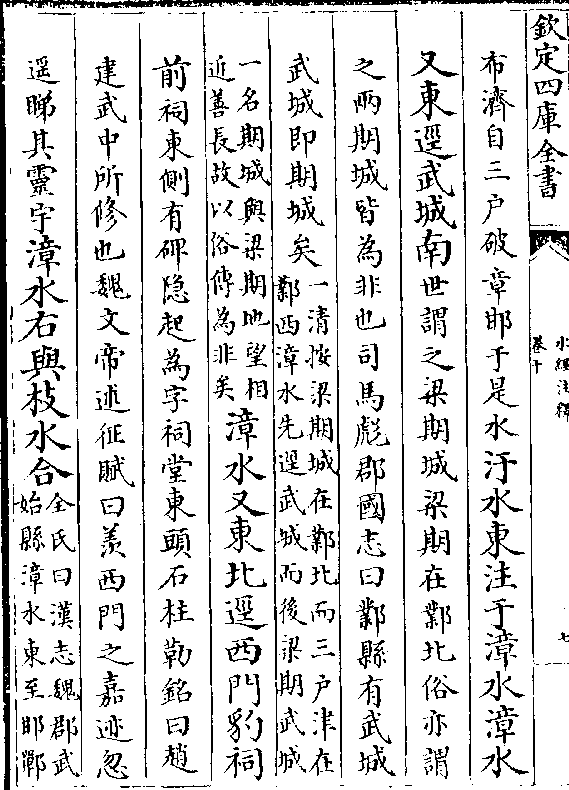 欽定四庫全書
水經注釋
卷十
七
布濟自三户破章邯于是水汙水東注于漳水漳水
又東逕武城南世謂之梁期城梁期在鄴北俗亦謂
之兩期城皆為非也司馬彪郡國志曰鄴縣有武城
武城即期城矣一清按梁期城在鄴北而三户津在
鄴西漳水先逕武城而後梁期武城
一名期城與梁期地望相
近善長故以俗傳為非矣漳水又東北逕西門豹祠
前祠東側有碑隐起為字祠堂東頭石柱勒銘曰趙
建武中所修也魏文帝述征賦曰羨西門之嘉迹忽
遥睇其靈宇漳水右與枝水合全氏曰漢志魏郡武
始縣漳水東至邯鄲